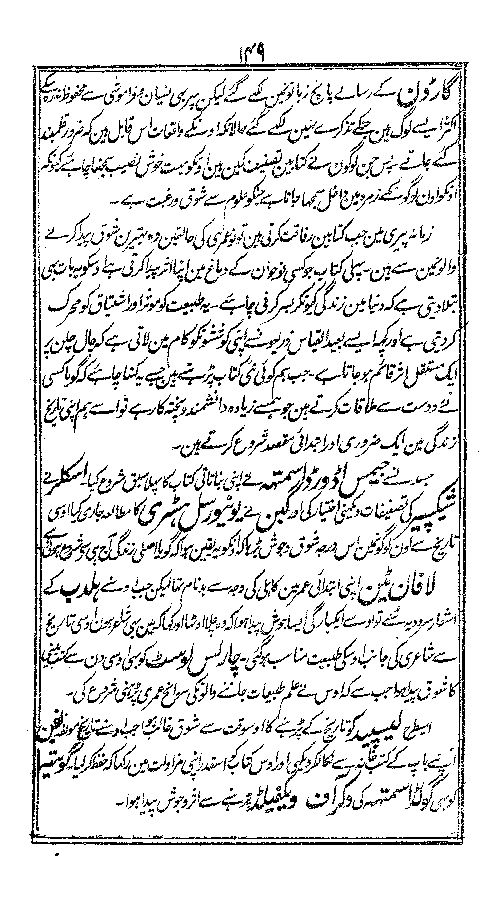 ۱۴۹
گارڈون کے رسالے پانچ زبانونمین لکھے گئے لیکن پھر بھی نسیان و فراموشی سے محفوظ نرہ سکے
اکثر ایسے لوگ ہین جنکے تذکرے نہین لکھے گئے حالانکہ اونکے واقعات اس قابل ہین کہ ضرور قلمبند
کئے جاتے۔ پس جن لوگون نے کتابین تصنیف کین ہین اونکو بہت خوش نصیب سمجھنا چاہئے کیونکہ
اونکو اون لوگونکے زمرہ مین داخل سمجھا جاتا ہے جنکو علوم سے شوق و رغبت ہے۔
زمانہ پیری مین جب کتابین رفاقت کرتی ہین تو نوعمری کی حالتمین وہ بہترین شوق پیدا کرنے
والونمین سے ہین۔ پہلی کتاب جو کسی نوجوان کے دماغ مین اپنا اثر پیدا کرتی ہے اوسکو یہ بات بھی
بتلا دیتی ہے کہ دنیا مین زندگی کیونکر بسر کرنی چاہئے۔ یہ طبیعت کو موثر اور اشتیاق کو محرک
کر دیتی ہے اور کچھ ایسے بعید القیاس ذریعونسے اپنی کوششونکو کام مین لاتی ہے کہ چال چلن پر
ایک مستقل اثر قائم ہو جاتا ہے۔ جب ہم کوئی نئی کتاب پڑہتے ہین جسے یہ کہنا چاہئے کہ گویا کسی
نئے دوست سے ملاقات کرتے ہین جو ہمسے زیادہ دانشمند و پختہ کار ہے تو اوسے ہم اپنی تاریخ
زندگی مین ایک ضروری اور ابتدائی مقصد شروع کرتے ہین۔
جسدن سے جیمس اڈورڈ اسمتھ نے اپنی نباتاتی کتاب کا پہلا سبق شروع کیا اسکلر نے
شیکسپیر کی تصنیفات دیکھنی اختیار کی اور گبن نے یونیورسل ہسٹری کا مطالعہ جاری کیا اوسی
تاریخ سے اون لوگونکو مین اس درجہ شوق و جوش بڑہا کہ اونکو یقین ہوا کہ گویا اصلی زندگی آج ہی سے شروع ہوئی ہے
لافان ٹین اپنی ابتدائی عمر مین کاہلی کی وجہ سے بدنام تھا لیکن جب اوسنے ہلدب کے
اشعار سرود یہ سنے تو اوسے ایکبارگی ایسا جوش پیدا ہوا کہ وہ چلا اوٹھا اور کہا کہ مین بھی شاعر ہون اوسی تاریخ
سے شاعری کی جانب اوسکی طبیعت مناسب ہو گئی۔ چارلس بوسٹ کو بھی اوسی دن سے کتب بینی
کا شوق پیدا ہوا جب سے کہ اوس نے علم طبعیات جاننے والونکی سوانح عمری پڑہنی شروع کی۔
اسطرح لیسپیڈ کو تاریخ کے پڑہنے کا اوسوقت سے شوق غالب ہوا جب اوسنے تاریخ موسیو بفین
اپنے باپ کے کتب خانہ سے نکالکر دیکھی اور اوس کتاب کو اسقدر اپنی مزاولت مین رکھا کہ حفظ کر لیا۔ گوئتیا
کو بھی گولڈ اسمتھ کی وکر آف ویکفیلڈ پڑہنے سے اثر و جوش پیدا ہوا۔